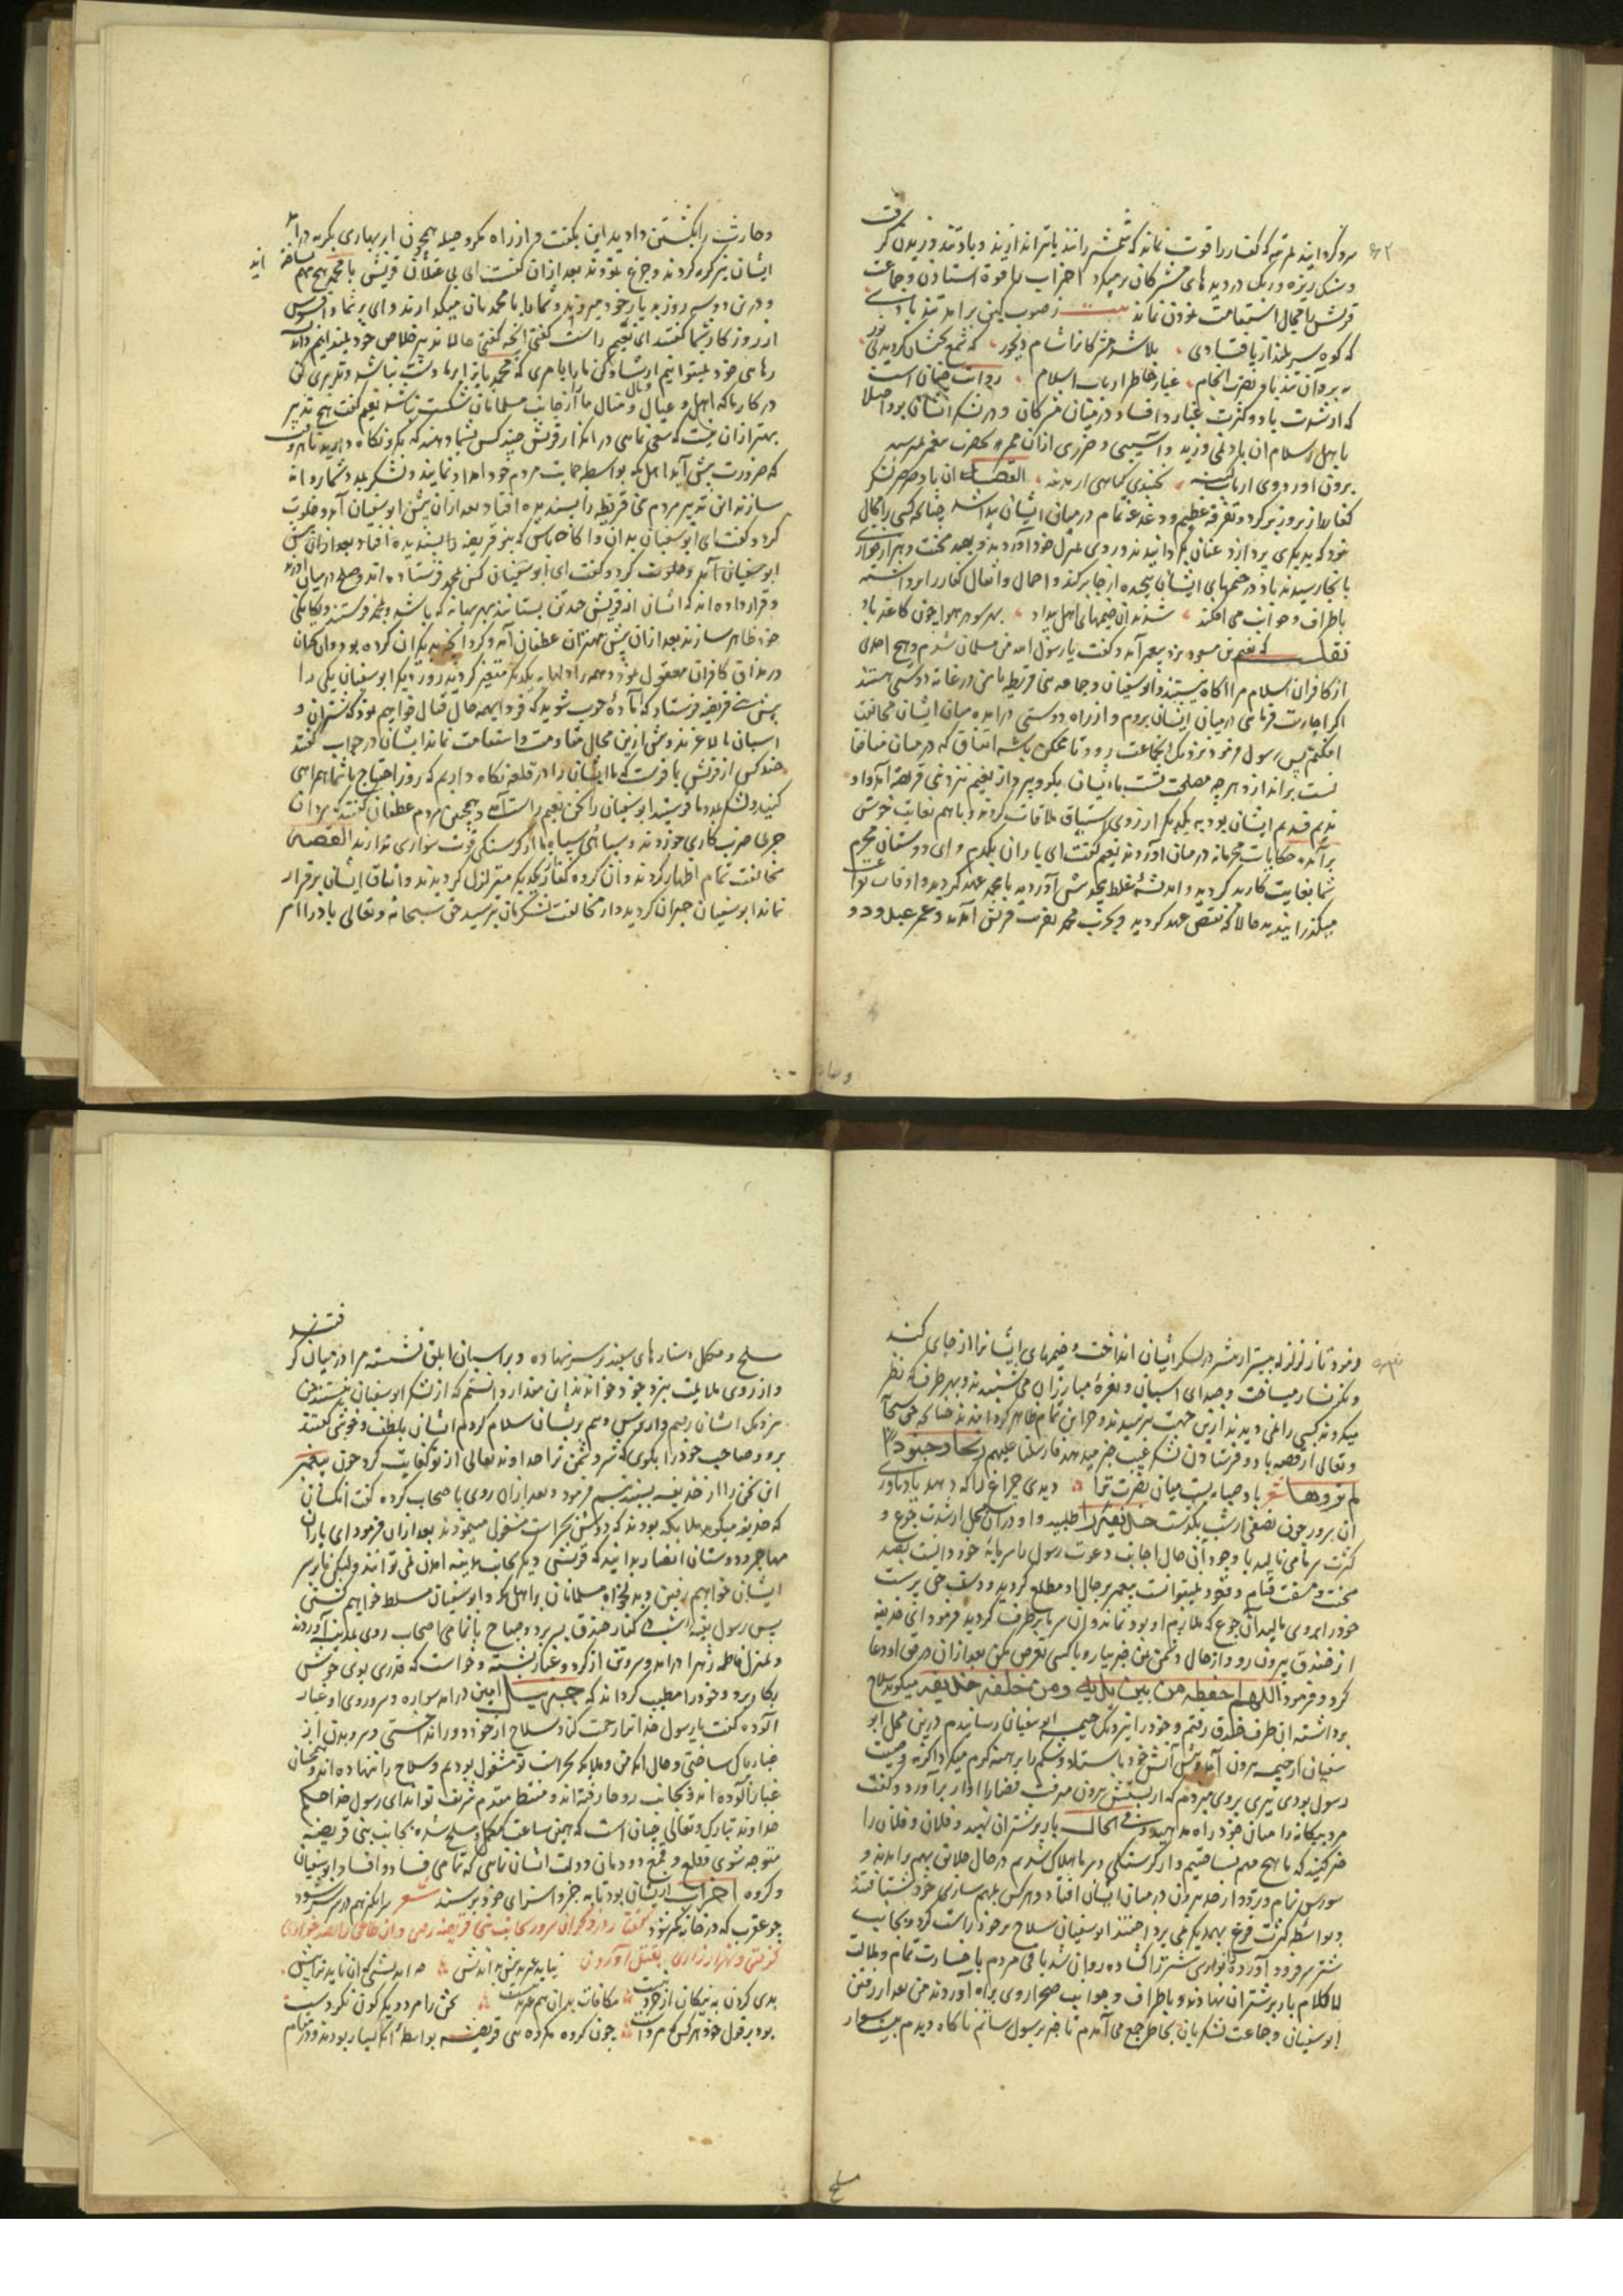 سرد گردانید بمرتبه که کفار را قوت نماند که شمشیر رانند یا تیر اندازند و باد تند وزیدن گرفت
و سنک ریزه و ریک در دیده های مشرکان پر میکرد احزاب را قوة استادن و جماعت
قریش را مجال استقامت نمودن نماند بیت ز صوب کین برامد تند بادی
که کوه سربلند از پا فتادی بلا شد مشرکانرا شام دیجور که شمع بختشان گردید بی نور
نه برد آن تند باد نصرت انجام غبار خاطر ارباب اسلام روایت چنان است
که از شدت باد و کثرت غبار و افساد در میان مشرکان و در لشکر ایشان بود اصلا
باهل اسلام ان باد نمی وزید و آسیبی و ضرری ازان ممر به حضرت پیغمبر نمیرسید
برون اورد روی ارباب کینه نجنبدی کیاهی از مدینه القصه ان باد صرصر لشکر
کفار را زیر و زبر کرد و تفرقه عظیم و دغدغه تمام در میان ایشان پیدا شد چنانکه کسی را مجال
نبود که بدیکری پردازد عنان بکردانیدند و روی بمنزل خود آوردند و بصد محنت و هزار خواری
بانجا رسیدند باد در خیمهای ایشان پیچیده از جا برکند و احمال و اثقال کفار را برداشته
باطراف و جوانب می افکند شد ان خیمهای اهل بیداد بهر سو در هوا چون کاغذ باد
نقلست که نعیم بن مسعود نزد پیغمبر آمد و گفت یا رسول الله من مسلمان شدم و هیچ احدی
از کافران اسلام مرا اکاه نیستند و ابوسفیان و جماعه بنی قریظه با من در غایة دوستی هستند
اکر اجازت فرمائی در میان ایشان بروم و از راه دوستی درامده میان ایشان مخالفت
افکنم پس رسول فرمود نزدیک انجماعت رود تا ممکن باشد اتفاق که در میان منافقان
است براندازد و هرچه مصلحت تست با ایشان بگو و بپرداز نعیم نزد بنی قریظه آمد و او
ندیم قدیم ایشان بود به یکدیگر از روی اشتیاق ملاقات کردند و باهم بغایت خوش
برآمده حکایات محرمانه درمیان اوردند نعیم گفت ای یاران یکدم و ای دوستان محرم
شما بغایت کار بد کردید و اندیشه غلط بخود پیش آوردید با محمد عهد کردید و اوقات بفراغت
میگذرانیدید حالا که نقض عهد کردید و بحرب محمد بنصرت قریش آمدید و عمر عبدود و
و حارث را بکشتن دادید این بکفت و از راه مکر و حیله همچون ابر بهاری بکریه درامد
ایشان نیز کریه کردند و جزع نمودند بعد ازان گفت ای بی عقلان قریش با محمد هیچ مهم نساخته اند
و درین دو سه روز بدیار خود میروند و شما را با محمد بان میکذارند وای بر شما و افسوس
از روزکار شما گفتند ای نعیم راست گفتی انچه گفتی حالا تدبیر خلاص خود نمیدانیم و راه
رهایی خود نمیتوانیم ارشاد کن ما را بامری که محمد را بر ما دست نباشد و تدبیری کن
در کار ما که اهل و عیال و مال و منال ما را از جانب مسلمانان شکست نباشد نعیم گفت هیچ تدبیر
بهتر ازان نیست که سعی نمایید در انکه از قریش چند کس بشما دهند که بکرو نکاه دارید تا هر وقت
که ضرورت پیش آید اهل مکه بواسطه حمایت مردم خود امداد نمایند و لشکر بمدد شما روانه
سازند این تدبیر مردم بنی قریظه را پسندیده افتاد بعد ازان پیش ابوسفیان آمد و خلوت
کرد و گفت ای ابوسفیان بدان و اکاه باش که بنو قریضه
ابوسفیان آمد و خلوت کرد و گفت ای ابوسفیان کس بمحمد فرستاده اند و صلح درمیان اورده
و قرار داده اند که ایشان از قریش چند تن بستانند بهر بهانه که باشد و بمحمد فرستند و یکانکی
خود ظاهر سازند بعد ازان پیش مهتران غطفان آمد و کرد انچه به دیکران کرده بود و ان سخنان
در مذاق کافران معقول نمود و همه را دلها به یکدیگر متغیر گردید روز دیگر ابوسفیان یکی را
پیش بنی قریضه فرستاد که آمادهٔ حرب شوید که فردا بهمه حال قتال خواهیم نمود که شتران و
اسبان ما لاغرند و بیش ازین مجال مقاومت و استقامت نماند ایشان در جواب گفتند
چند کس از قریش با فرست که ما ایشان را در قلعه نکاه داریم که روز احتیاج با شما همراهی
کنید و لشکر بمدد ما فرستید ابوسفیان را سخن نعیم راست آمد و همچنین مردم غطفان گفتند که مردان
جمله ضرب کاری خوردند و سپاهی سیاه ما از کرسنکی قوت سواری ندارند القصه
مخالفت تمام اظهار کردند و ان کروه کفار بیکدیگر متزلزل کردیدند و اتفاق ایشان برقرار
نماند ابوسفیان حیران گردید و از مخالفت لشکریان بترسید حق سبحانه و تعالی باد را امر
وصار
فرمود تا زلزله بیشتر از پیشتر در لشکر ایشان انداخت و خیمهای ایشانرا از جای کند
و نکونسار میساخت و صدای اسپان و نعرهٔ مبارزان می شنیدند و بهر طرف که نظر
میکردند کسی را نمی دیدند ازین جهت بترسیدند و حراس تمام ظاهر گردانیدند چنانکه حق سبحانه
و تعالی از قصه باد و فرستادن لشکر غیب خبر میدهد فارسلنا علیهم ریحا و جنودا
لم تروها شعر باد صبا ببست میان نصرت ترا دیدی چراغ را که دهد باد یاوری
آن سرور چون نصفی از شب بگذشت حذیفه را طلبید و او دران محل از شدت جوع و
کثرت سرما می نالید با وجود آن حال اجابت دعوت رسول را سرمایهٔ خود دانست بصد
محنت و مشقت قیام و قعود نمیتوانست پیغمبر بر حال او مطلع گردید و دست حق پرست
خود را بر وی مالید آن جوع که ملازم او بود نماند و ان سرما برطرف گردید فرمود ای حذیفه
از خندق بیرون رو و از حال دشمن بمن خبر بیار و با کسی تعرض مکن بعد ازان در حق او دعا
کرد و فرمود اللهم احفظه من بین یدیه و من خلفه حذیفه میکوید سلاح
برداشته ان طرف خندق رفتم و خود را بنزدیک خیمه ابوسفیان رسانیدم درین محل ابو
سفیان از خیمه بیرون آمد و پیش آتش خود باستاد و شکم را برهنه کرم میکرد اگر نه وصیت
رسول بودی تیری بر وی میزدم که از پشتش بیرون میرفت قضا را اواز برآورد و گفت
مرد بیکانه را میان خود راه مدهید و فی الحال بار بر شتران نهید و فلان و فلان را
خبر کنید که ما هیچ مهم نساختیم و از کرسنکی و سرما هلاک شدیم در حال خلایق بهم برامدند و
شورش تمام و تردد از حد بیرون در میان ایشان افتاد و هرکس بمهم سازی خود شتافتند
و بواسطه کثرت فزع بهمدیکر نمی پرداختند ابوسفیان سلاح بر خود راست کرد و بجانب
شتر سر فرود آورد زانوهای شتر را کشاده روان شد باقی مردم با خسارت تمام و بطالت
لا کلام بار بر شتران نهادند و باطراف و جوانب صحرا روی براه آوردند من بعد از رفتن
ابوسفیان و جماعت لشکریان بخاطر جمع می آمدم تا خبر برسول رسانم ناکاه دیدم بیست سوار
مسلح
مسلح و مکمل دستارهای سفید بر سر نهاده و بر اسپان ابلق نشسته مرا در میان گرفتند
و از روی ملایمت بنزد خود خواندند ان مقدار دانستم که از لشکر ابوسفیان نیستند من
بنزدیک ایشان رفتم و از ترس و بیم بر ایشان سلام کردم ایشان بلطف و خوشی گفتند
برو و صاحب خود را بکوی که شر دشمن ترا خداوند تعالی از تو کفایت کرد چون پیغمبر
این سخن را از حذیفه بشنید تبسم فرمود و بعد ازان روی باصحاب کرده گفت انکسان
که حذیفه میکوید ملایکه بودند که دوش بحراست مشغول مینمودند بعد ازان فرمود ای یاران
مهاجر و دوستان انصار بدانید که قریش دیگر بجانب مدینه امدن نمی توانند ولیکن ما بر سر
ایشان خواهیم رفتن و بدلخواه مسلمانان بر اهل مکه و ابوسفیان مسلط خواهیم گشتن
پس رسول بقیه شب در کنار خندق بسر برد و صباح با تمامی اصحاب روی بمدینه آوردند
و بمنزل فاطمه زهرا درامد و سر و تن از کرد و غبار بشسته و خواست که قدری بوی خوش
بکار برد و خود را مطیب کرداند که جبرئیل امین درامد سواره و سر و روی او غبار
آلوده گفت یا رسول خدا ترا رحمت کناد سلاح از خود دور انداختی و سر و بدن از
غبار پاک ساختی و حال انکه من و ملایکه بحراست تو مشغول بودیم و سلاح را ننهاده اند و همچنان
غبار آلوده اند و بجانب روحا رفته اند و منتظر مقدم شریف تو اند ای رسول خدا حکم
خداوند تبارک و تعالی چنان است که همین ساعت مکمل و مسلح شده بجانب بنی قریضه
متوجه شوی و قلع و قمع دودمان و دولت ایشان نمایی که تمامی فساد و افساد ابوسفیان
و کروه احزاب ازیشان بود تا به جزو استرای خود برسند شعر سر انکز بهم در سر شود
چو عقرب که در خانه کمتر شود گفتار روز و گران سرور بجانب بنی قریضه رفتن و ان طاغی را بصد خواری
گرفتن و بهزار زاری بقتل آوردن نیابد عدو پیش بد اندیش بد اندیشی کران ناید فرا پیش
بدی کردن به نیکان از خرد نیست مکافات بدان هم غیر بد نیست سخن را مرد دیگر گون نگردست
بود بر قول خود هرکس که مردست چون کروه مکروه بنی قریضه بواسطه آنکه بسیار بودند و در مقام